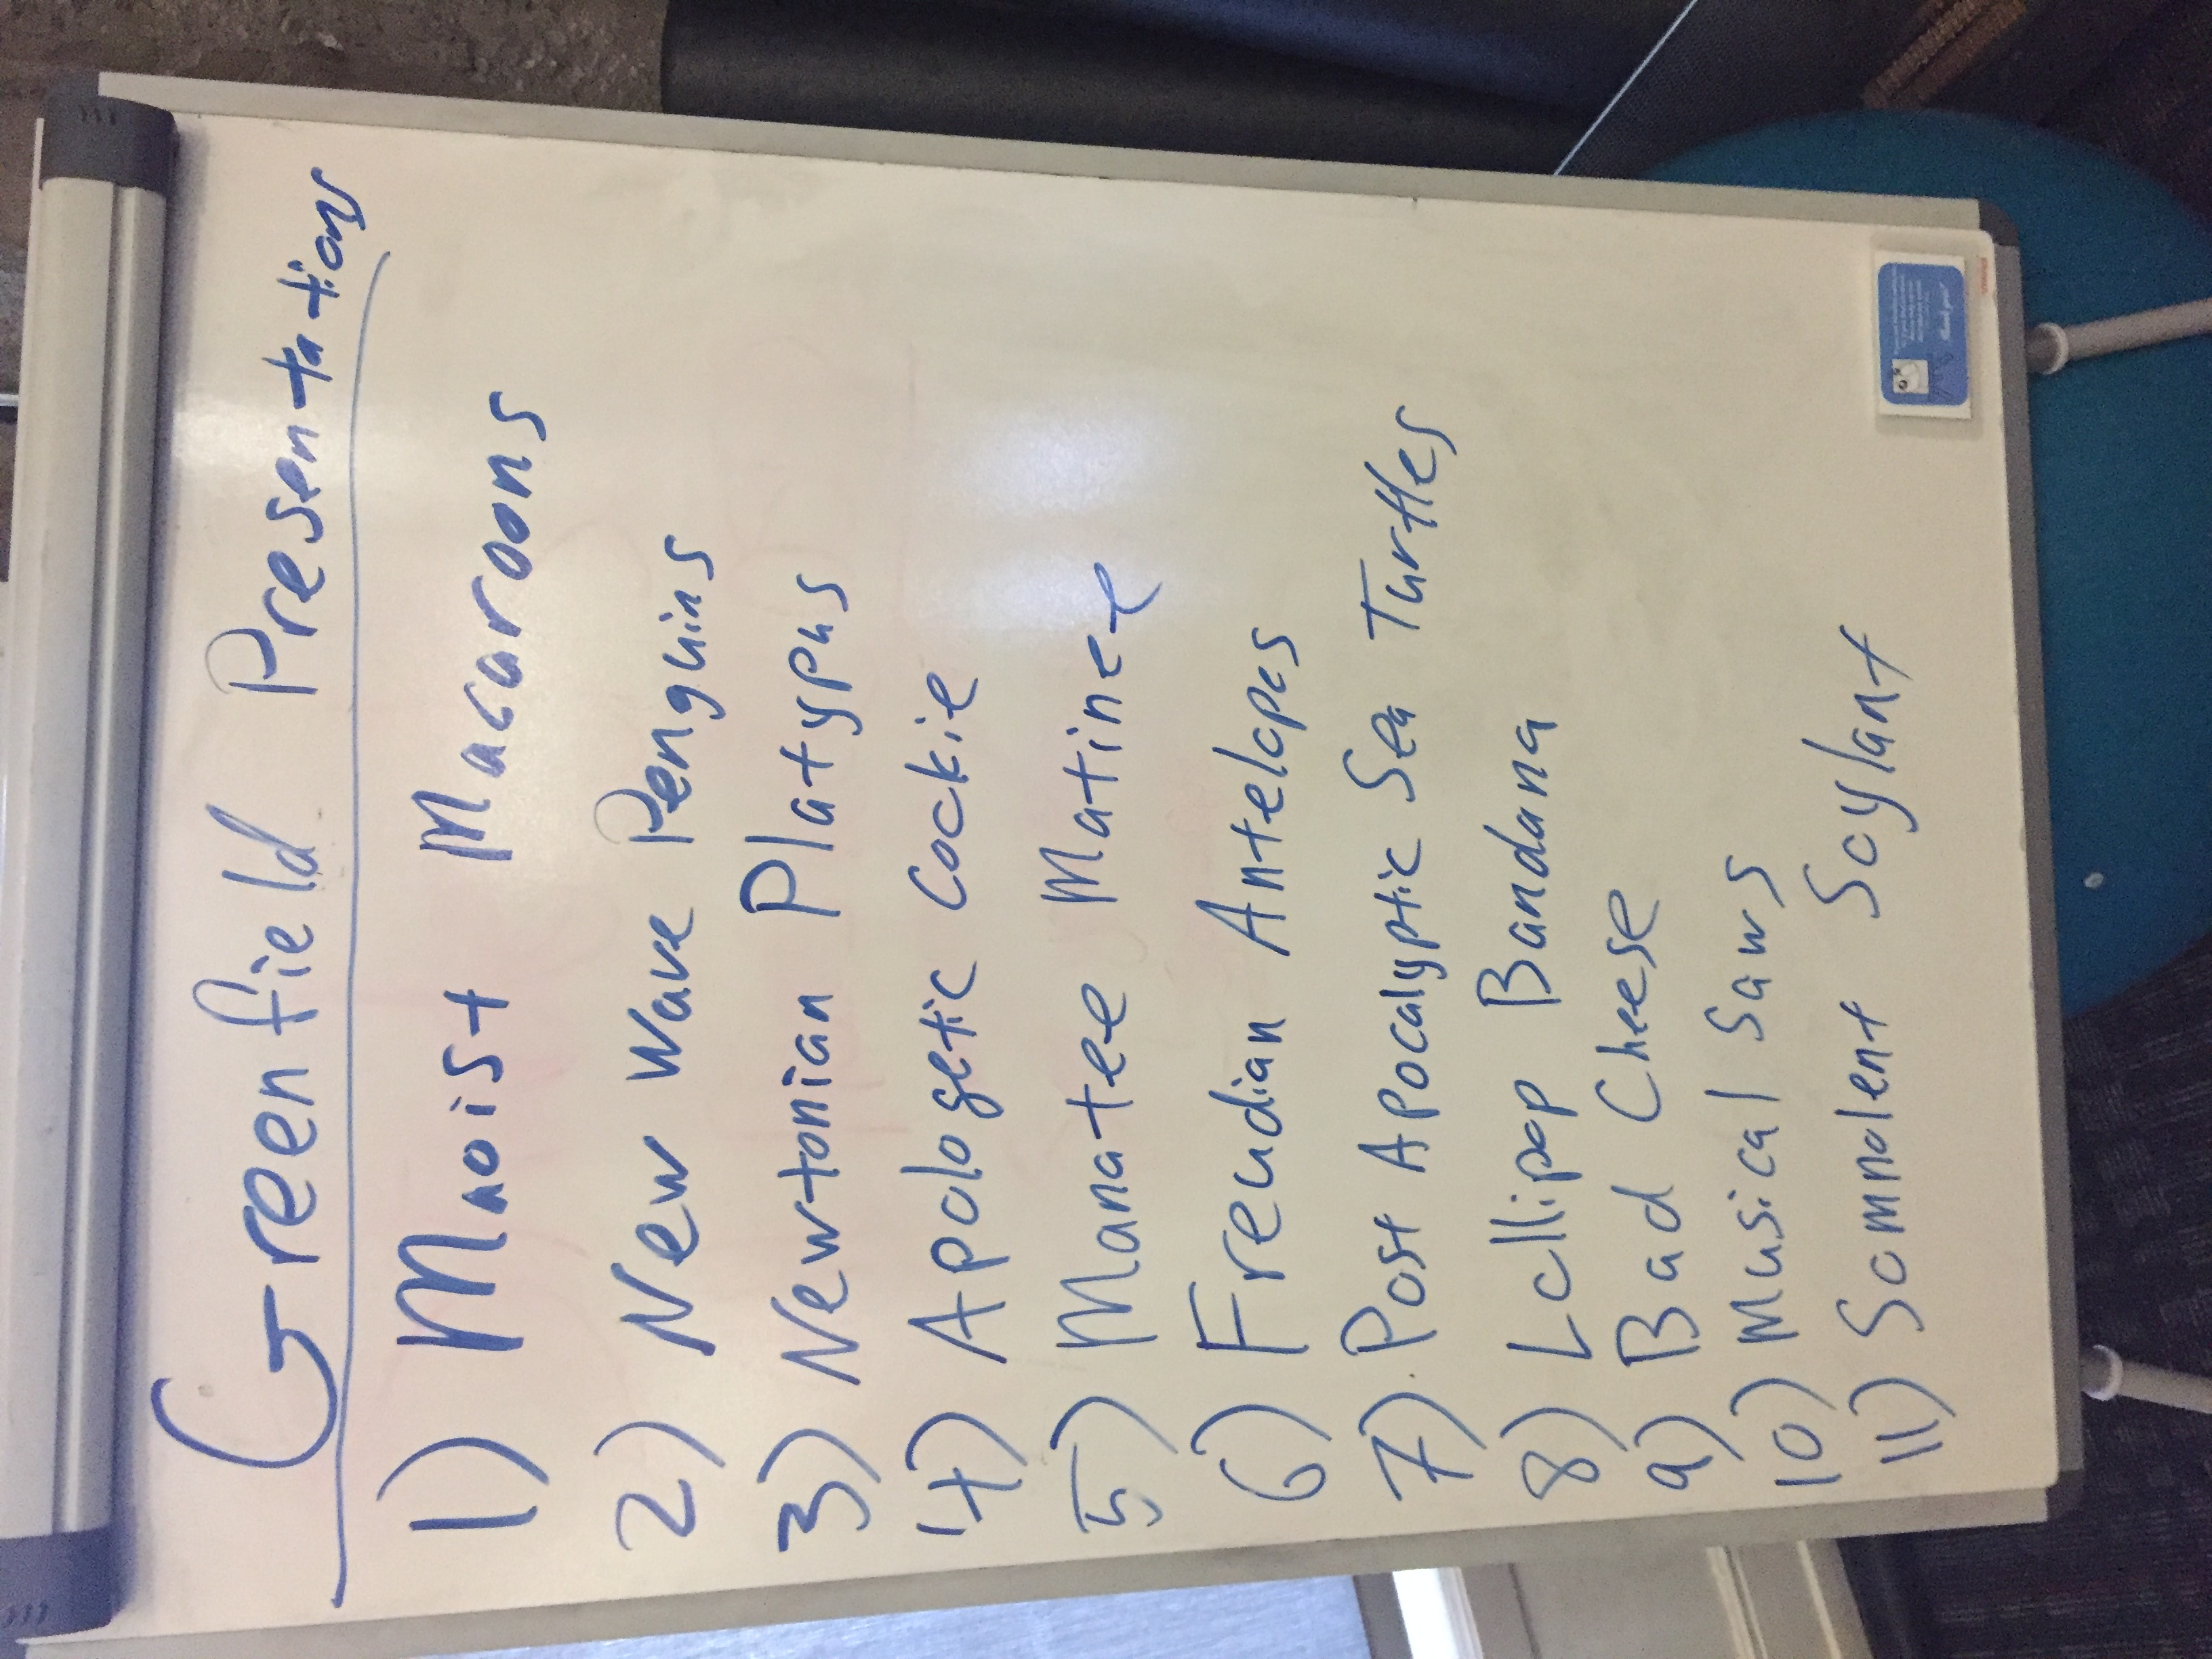 Greenfield Presentations
1) Maoist Macaroons
2) New Wave Penguins
3) Newtonian Platypus
4) Apologetic Cookie
5) Manatee Matinee
6) Freudian Antelopes
7) Post Apocalyptic Sea Turtles
8) Lollipop Bandana
9) Bad Cheese
10) Musical Saws
11) Somnolent Soylant
Thank you!